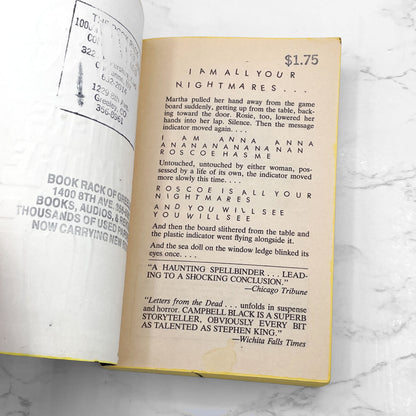 THE BOOK
100
COL
322
Greeley, CO
1229 8th Ave.
Greeley, CO
356-
BOOK RACK OF GREE
1400 8TH AVE.
BOOKS, AUDIOS, &
THOUSANDS OF USED PA
NOW CARRYING NEW
$1.75
I AM ALL YOUR
NIGHTMARES . . .
Martha pulled her hand away from the game
board suddenly, getting up from the table, back-
ing toward the door. Rosie, too, lowered her
hands into her lap. Silence. Then the message
indicator moved again. . . .
I AM ANNA ANNA
ANANANANANANAN
ROSCOE HAS ME
Untouched, untouched by either woman, pos-
sessed by a life of its own, the indicator moved
more slowly this time. . . .
ROSCOE IS ALL YOUR
NIGHTMARES
AND YOU WILL SEE
YOU WILL SEE
And then the board slithered from the table and
the plastic indicator went flying alongside it.
And the sea doll on the window ledge blinked its
eyes once. . . .
"A HAUNTING SPELLBINDER . . . LEAD-
ING TO A SHOCKING CONCLUSION."
—Chicago Tribune
"Letters from the Dead . . . unfolds in suspense
and horror. CAMPBELL BLACK IS A SUPERB
STORYTELLER, OBVIOUSLY EVERY BIT
AS TALENTED AS STEPHEN KING."
—Wichita Falls Times